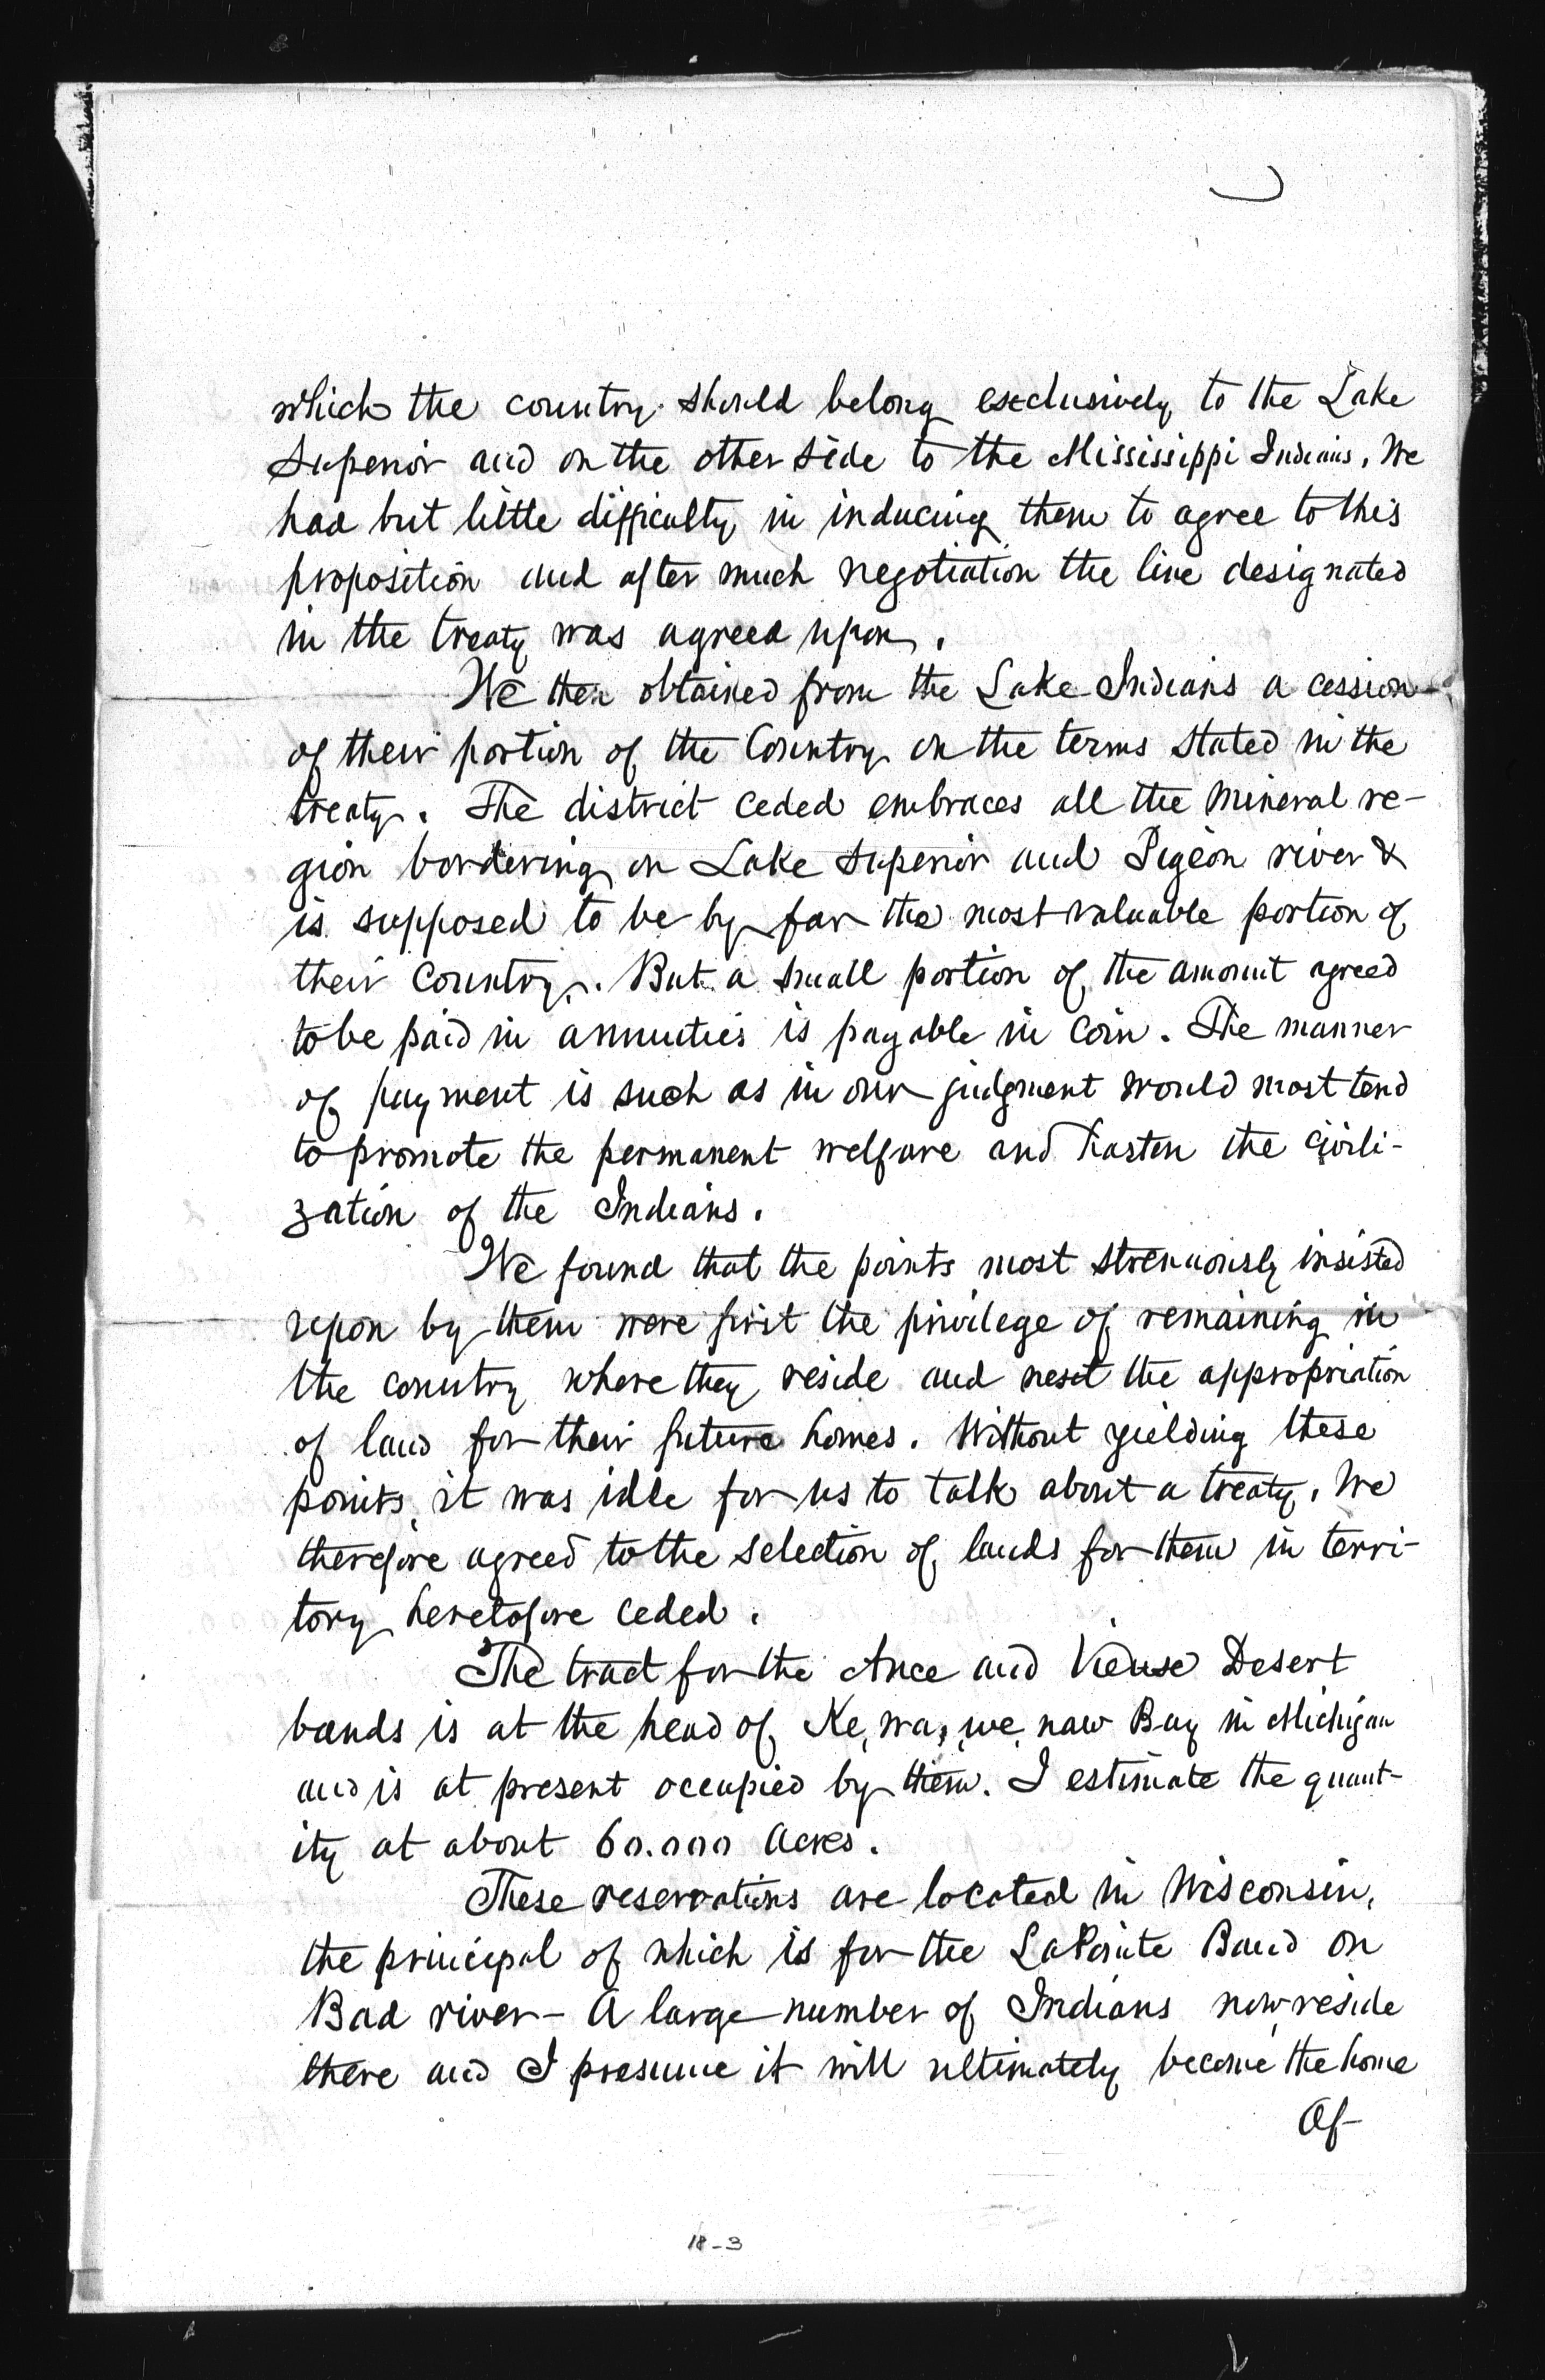 which the country should belong exclusively to the Lake
Superior and on the other side to the Mississippi Indians. We
had but little difficulty in inducing them to agree to this
proposition and after much negotiation the line designated
in the treaty was agreed upon.
We then obtained from the Lake Indians a cession
of their portion of the Country on the terms stated in the
treaty. The district ceded embraces all the mineral re-
gion bordering on Lake Superior and Pigeon river &
is supposed to be by far the most valuable portion of
their Country. But a small portion of the amount agreed
to be paid in annuities is payable in Coin. The manner
of payment is such as in our judgment would most tend
to promote the permanent welfare and hasten the civili-
zation of the Indians.
We found that the points most strenuously insisted
upon by them were first the privilege of remaining in
the country where they reside and next the appropriation
of land for their future homes. Without yielding these
points, it was idle for us to talk about a treaty. We
therefore agreed to the selection of lands for them in terri-
tory heretofore ceded.
The tract for the Ance and Vieuse Desert
bands is at the head of Ke, wa, we, naw Bay in Michigan
and is at present occupied by them. I estimate the quant-
ity at about 60.000 Acres.
These reservations are located in Wisconsin,
the principal of which is for the LaPointe Band on
Bad river - A large number of Indians now reside
there and I presume it will ultimately become the home
Of
18-3